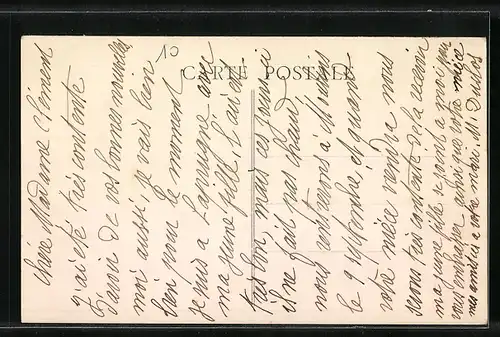 10
CARTE POSTALE
Chère Madame Clément
J'ai été très contente
d'avoir de vos bonnes nouvelles
moi aussi je vais bien
bien pour le moment
je suis a Laprugne avec
ma jeune fille l'air est
très bon mais ces jours ci
il ne fait pas chaud
nous rentrerons à Moulins
le 9 septembre, et quand
votre nièce viendra nous
serons très contente de la recevoir
ma jeune fille se joint a moi pour
vous embrasser ainsi que votre nièce
mes amitiés a votre mari. M. Dubos